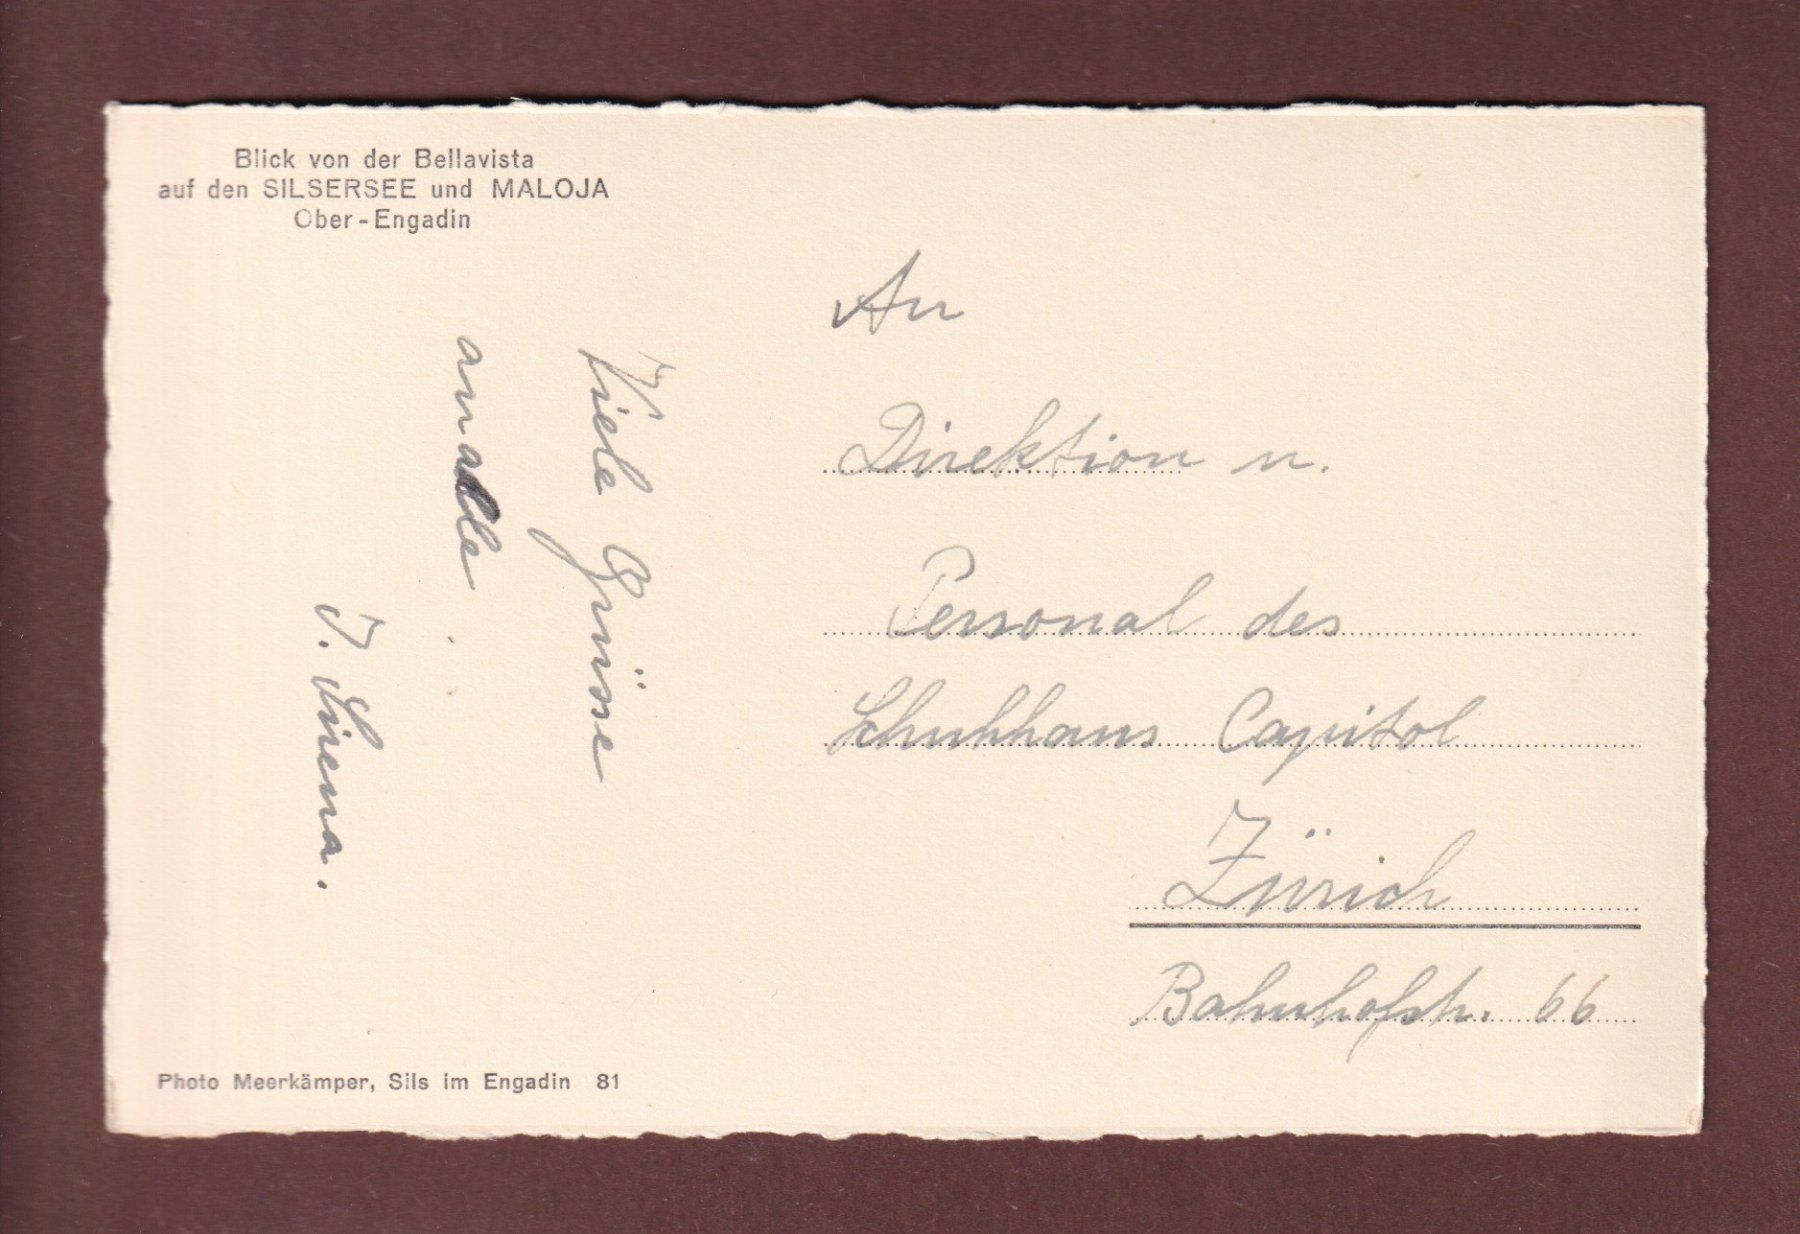 Blick von der Bellavista
auf den SILSERSEE und MALOJA
Ober-Engadin
Viele Grüsse
an alle
J.
An
Direktion u.
Personal des
Schuhhaus Capitol
Zürich
Bahnhofstr. 66
Photo Meerkämper, Sils im Engadin 81